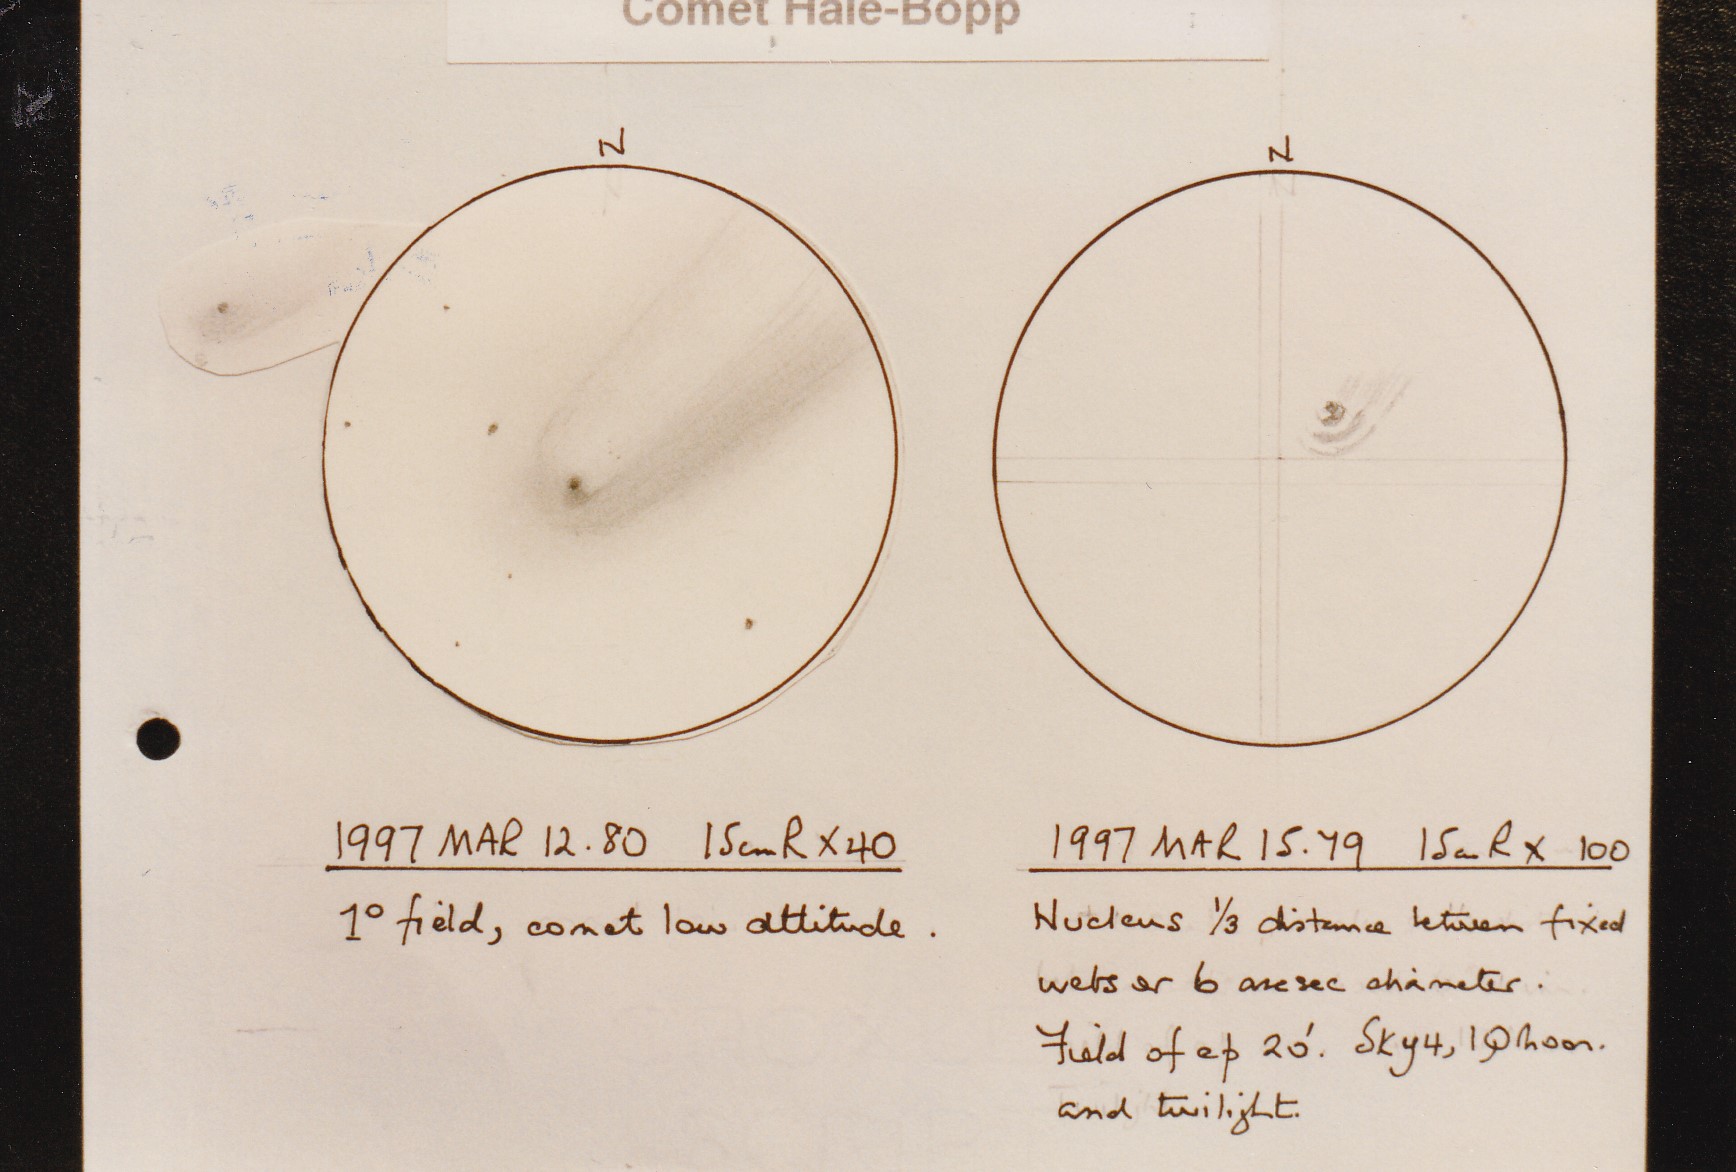 Comet Hale-Bopp
N
N
1997 MAR 12.80 15cmR X40
1997 MAR 15.79 15cmR X 100
1° field, comet low altitude.
Nucleus 1/3 distance between fixed
webs or 6 arcsec diameter.
Field of ep 20'. Sky4, 1Q Moon.
and twilight.